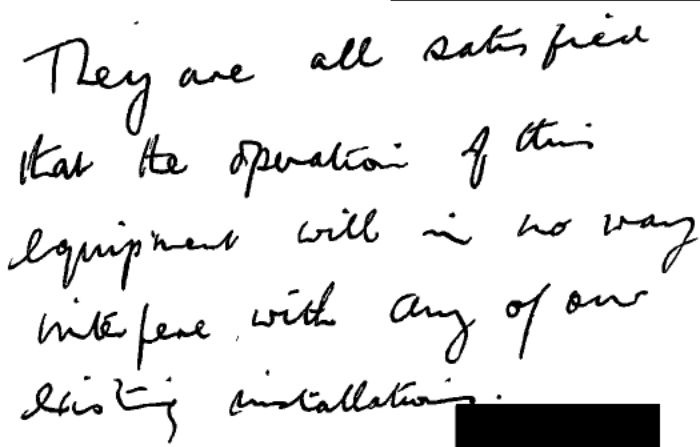 They are all satisfied
that the operation of this
equipment will in no way
interfere with any of our
existing installations.